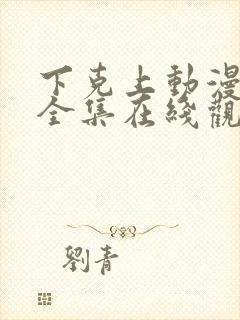 下克上動漫
全集在綫觀
劉青